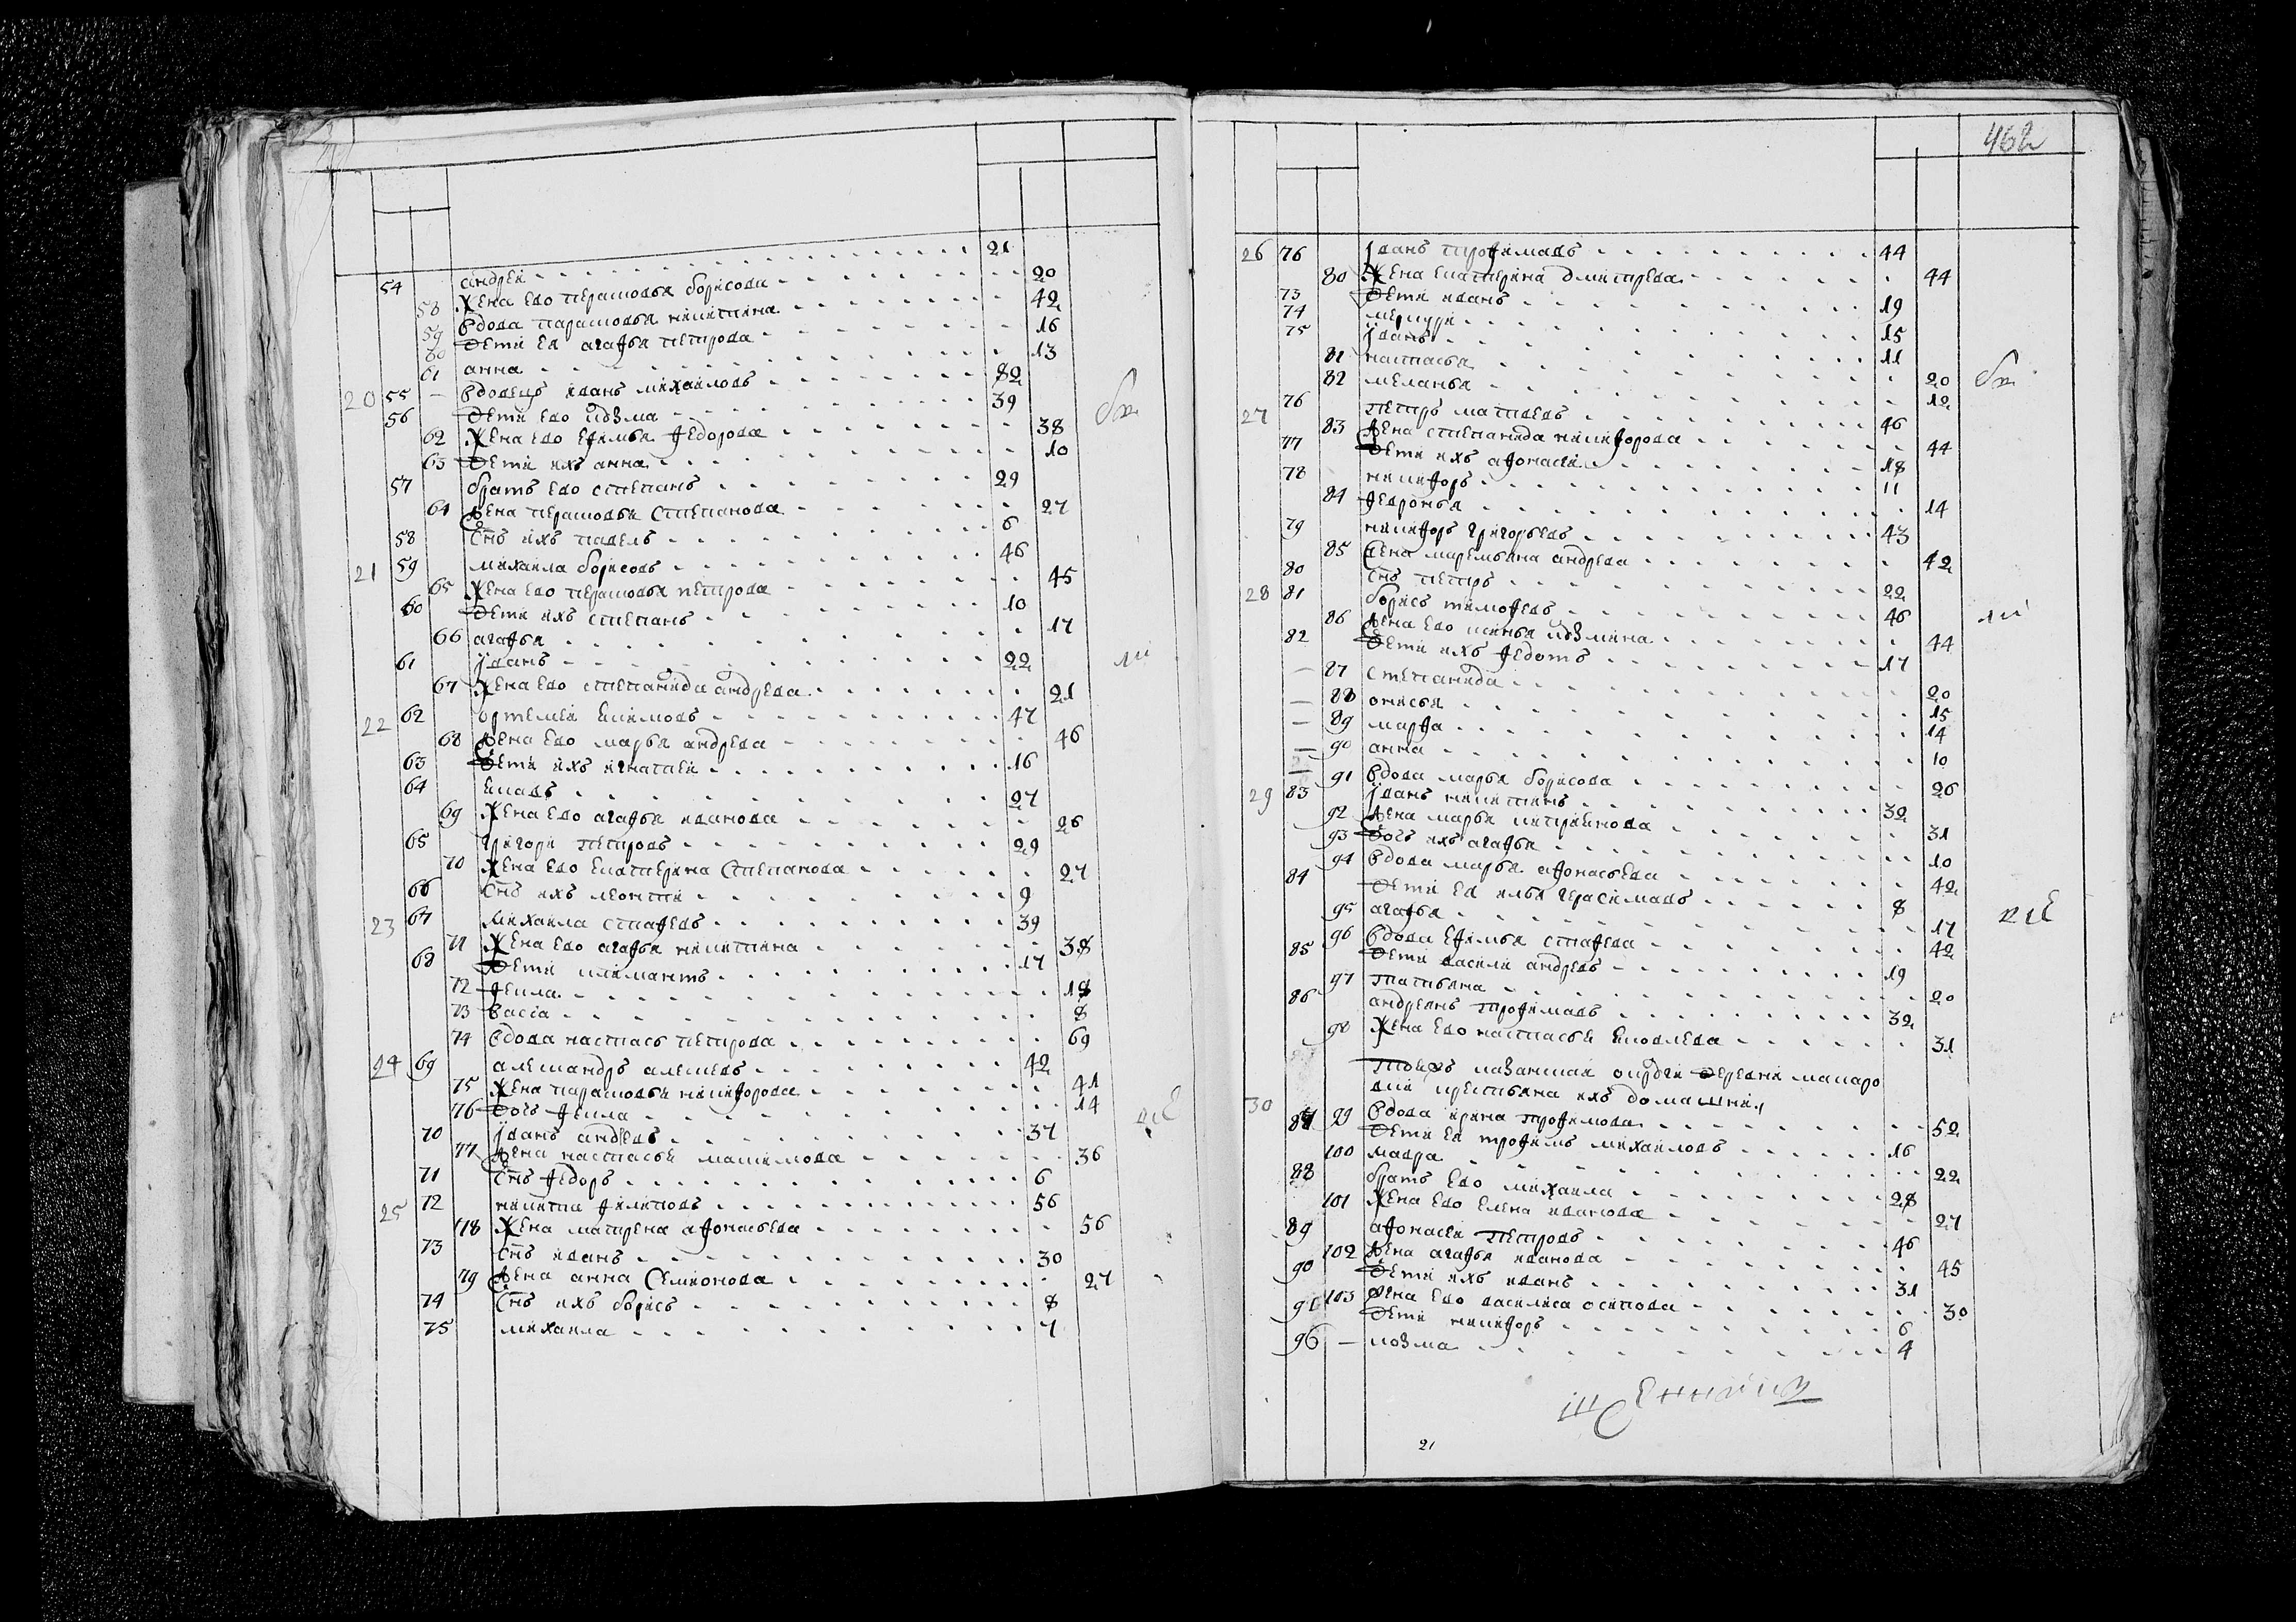 54 андреи 21
58 Жена ево перасковья борисова 20
59 вдова парасковья никитина 42
60 Дети ея агафья петрова 16
61 анна 13
20 55 — вдовецъ иванъ михаиловъ 82
56 Дети ево кузма 39
62 Жена ево ефимья федорова 38
63 Дети ихъ анна 10
57 братъ ево степанъ 29
64 Жена перасковья степанова 27
58 Снъ ихъ павелъ 6
21 59 михаила борисовъ 46
65 Жена ево перасковья петрова 45
60 Дети ихъ степанъ 10
66 агафья 17
61 іванъ 22
67 Жена ево степанида андрева 21
22 62 ортемеи екимовъ 47
68 Жена ево марья андрева 46
63 Дети ихъ игнатеи 16
64 еким 27
69 Жена ево агафья иванова 26
65 григореи петровъ 29
70 Жена ево екатерина степанова 27
66 Снъ ихъ леонтеи 9
23 67 михаила стафевъ 39
71 Жена ево агафья никитина 38
68 Дети климантъ 17
72 фекла 18
73 васса 8
74 вдова настась петрова 69
24 69 александръ алексевъ 42
75 Жена парасковья никифорова 41
76 Дочь фекла 14
70 іванъ андревъ 37
77 Жена настасья максимова 36
71 Снъ федоръ 6
25 72 никита филиповъ 56
78 Жена матрена афонасьева 56
73 Снъ иванъ 30
79 Жена анна семионова 27
74 Снъ ихъ борисъ 8
75 михаила 7
462
26 76 іванъ трофимавъ 44
80 Жена екатерина дмитрева 44
73 Дети иванъ 19
74 меркурі 15
75 іванъ 11
81 настасья 20
82 меланья 12
27 76 петръ матвевъ 46
83 Жена степанида никифорова 44
77 Дети ихъ афонасеи 18
78 никифоръ 11
84 февронья 14
79 никифоръ григорьевъ 43
85 Жена маремьяна андрева 42
80 Снъ петръ 22
28 81 борисъ тимофевъ 46
86 Жена ево ксинья кузмина 44
82 Дети ихъ федотъ 17
— 87 степанида 20
— 88 онисья 15
— 89 марфа 14
— 90 анна 10
91 вдова марья борисова 26
29 83 іванъ никитинъ 32
92 Жена марья 31
93 Дочь ихъ агафья 10
94 вдова марья афонасьева 42
84 Дети ея илья герасимавъ 8
95 агафья 17
96 вдова ефимья стафева 42
85 Дети василеи андревъ 19
97 татьяна 20
86 андреянъ трофимавъ 32
98 Жена ево настасья яковлева 31
Деревни макаро
крестьяна ихъ домашнихъ
30 99 вдова ирина трофимова 52
87 Дети ея трофимъ михаиловъ 16
100 мавра 22
88 братъ ево михаила 28
101 Жена ево елена иванова 27
89 афонасеи петровъ 46
102 Жена агафья иванова 45
90 Дети ихъ иванъ 31
103 Жена ево василиса осипова 30
91 Дети никифоръ 6
96 — козма 4
21